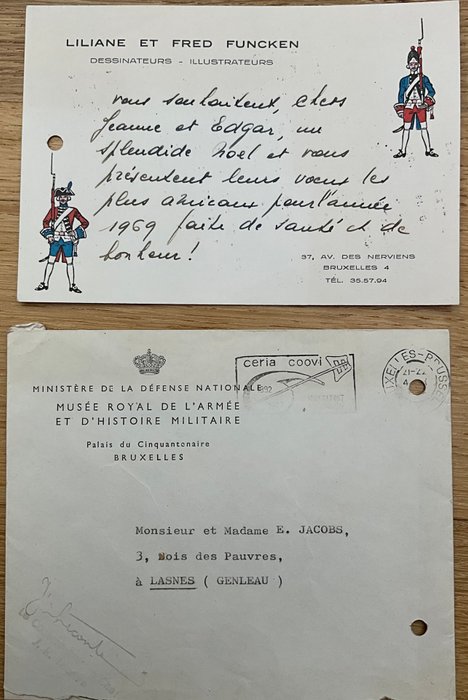 LILIANE ET FRED FUNCKEN
DESSINATEURS - ILLUSTRATEURS
vous souhaitent, chers
Jeanne et Edgar, un
splendide Noël et vous
présentent leurs vœux les
plus amicaux pour l'année
1969 faite de santé et de
bonheur!
37, AV. DES NERVIENS
BRUXELLES 4
TÉL. 35.57.94
MINISTÈRE DE LA DÉFENSE NATIONALE
MUSÉE ROYAL DE L'ARMÉE
ET D'HISTOIRE MILITAIRE
Palais du Cinquantenaire
BRUXELLES
ceria coovi
21-22
Monsieur et Madame E. JACOBS,
3, Bois des Pauvres,
à LASNES ( GENLEAU )